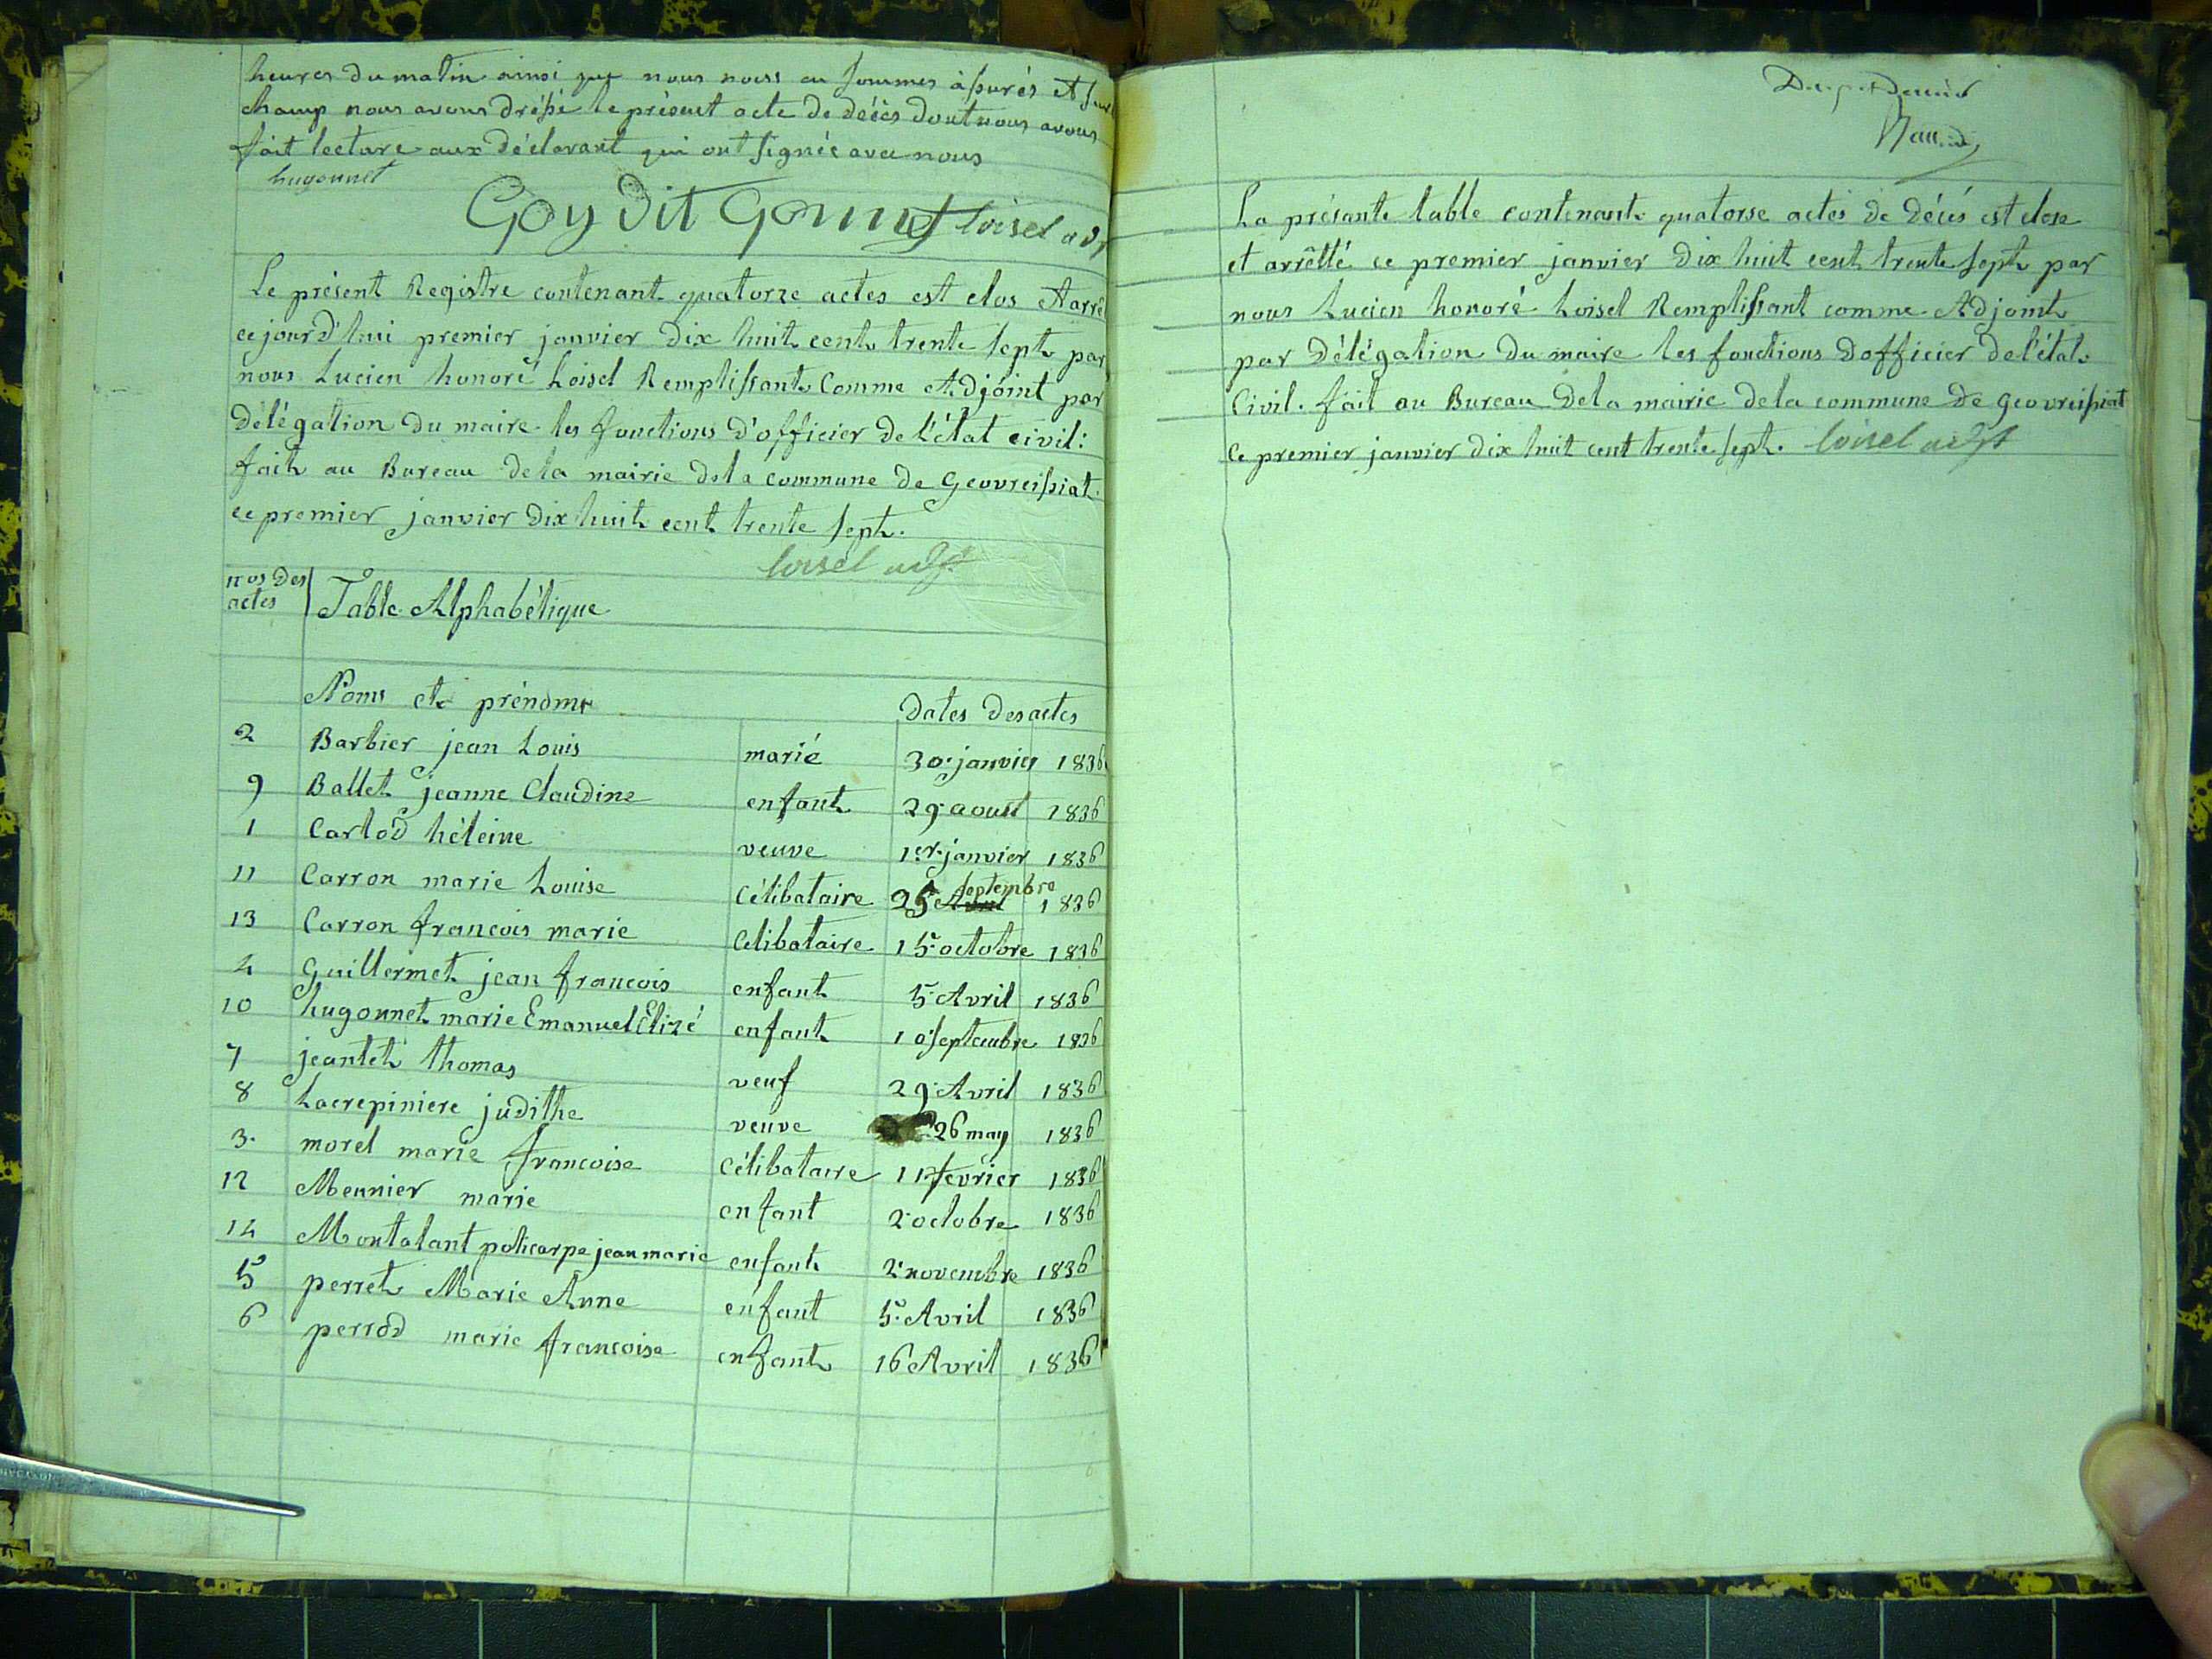 heures du matin ainsi que nous nous en sommes assurés et sur
champ nous avons dréssé le présent acte de décès dont nous avons
fait lecture aux déclarant qui ont signée avec nous
hugonnet
Goy dit Gonnet loisel adj
Le présent Registre contenant quatorze actes est clos et arrê
ce jourd'hui premier janvier dix huit cent trente sept par
nous Lucien honoré Loisel Remplissant comme Adjoint par
délégation du maire les fonctions d'officier de l'état civil:
fait au Bureau de la mairie de la commune de Geovreissiat
ce premier janvier dix huit cent trente sept.
loisel adjt
nos des actes Table Alphabétique
Noms et prénoms dates des actes
2 Barbier jean Louis marié 30 janvier 1836
9 Ballet jeanne Claudine enfant 29 aoust 1836
1 Carlod héleine veuve 1er janvier 1836
11 Carron marie Louise Célibataire 25 Avril septembre 1836
13 Carron francois marie Celibataire 15 octobre 1836
4 Guillermet jean francois enfant 5 Avril 1836
10 hugonnet marie Emanuel Elizé enfant 10 septembre 1836
7 jeantet thomas veuf 29 Avril 1836
8 Lacrepiniere judithe veuve 26 may 1836
3 morel marie francoise Célibataire 11 fevrier 1836
12 Meunier marie enfant 2 octobre 1836
14 Montalant policarpe jean marie enfant 2 novembre 1836
5 perret Marie Anne enfant 5 Avril 1836
6 perrod marie francoise enfant 16 Avril 1836
dernier
La présante table contenant quatorse actes de décés est close
et arrêtté ce premier janvier dix huit cent trente sept par
nous Lucien honoré Loisel Remplissant comme Adjoint
par délégation du maire les fonctions dofficier de l'état
Civil. fait au Bureau de la mairie de la commune de geovreissiat
Ce premier janvier dix huit cent trente sept. loisel adjt